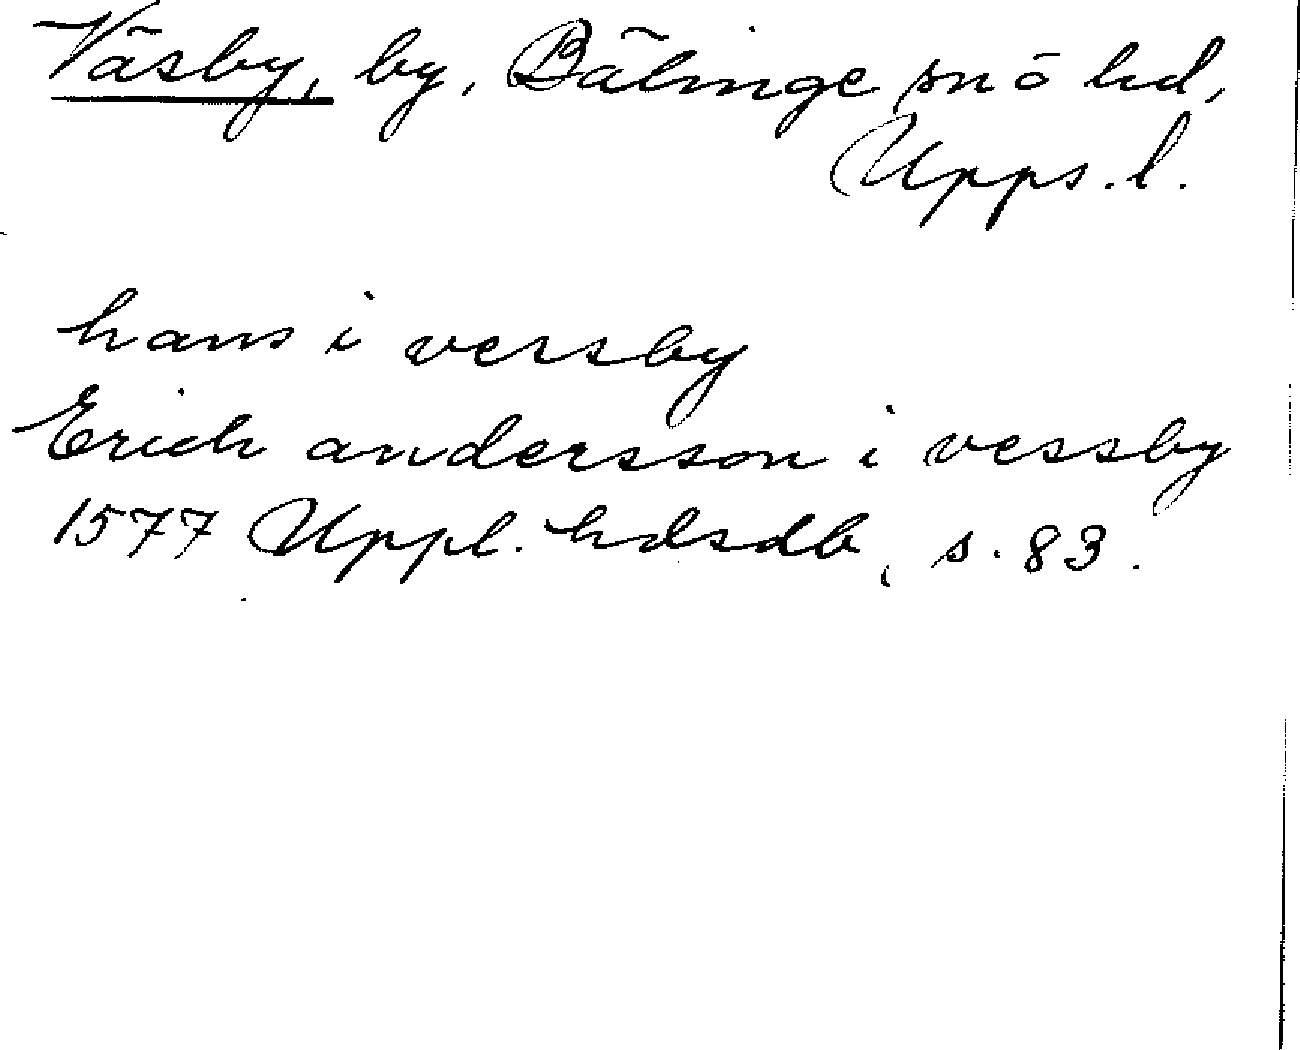 Väsby, by, Bälinge sn ō hd,
Upps. l.
hans i versby
Erich andersson i vessby
1577 Uppl. hdsdb, s. 83.